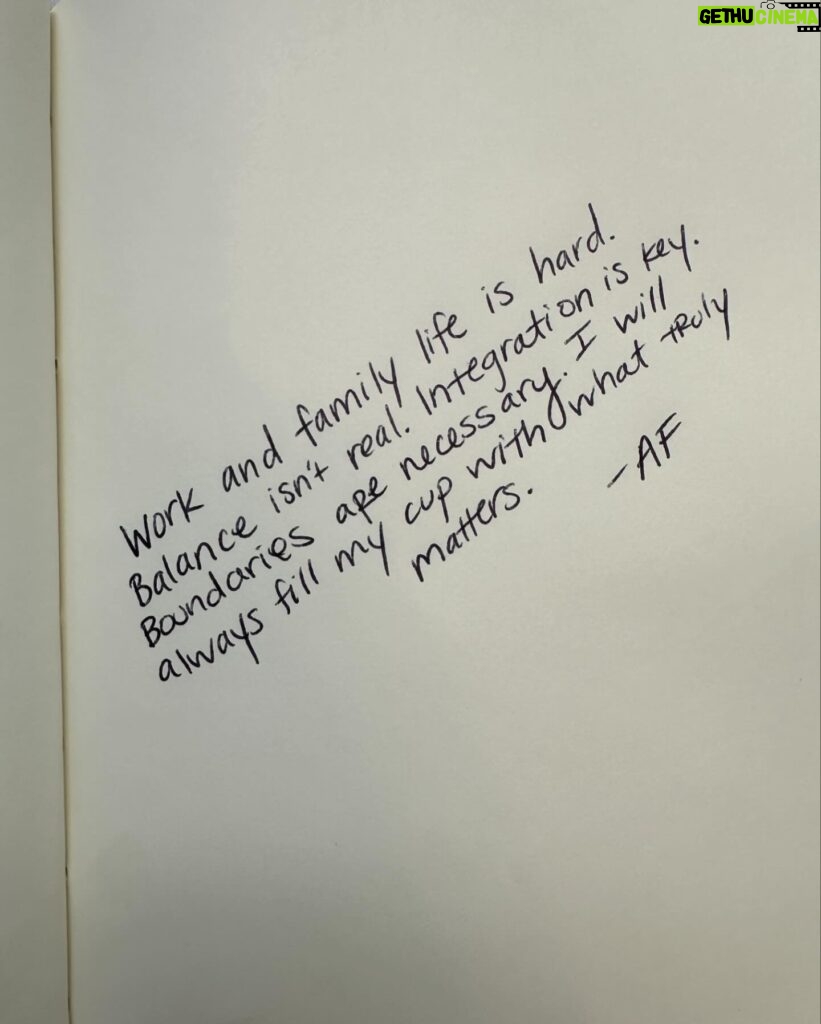 GETHU CINEMA
Work and family life is hard.
Balance isn't real. Integration is key.
Boundaries are necessary. I will
always fill my cup with what truly
matters.
-AF